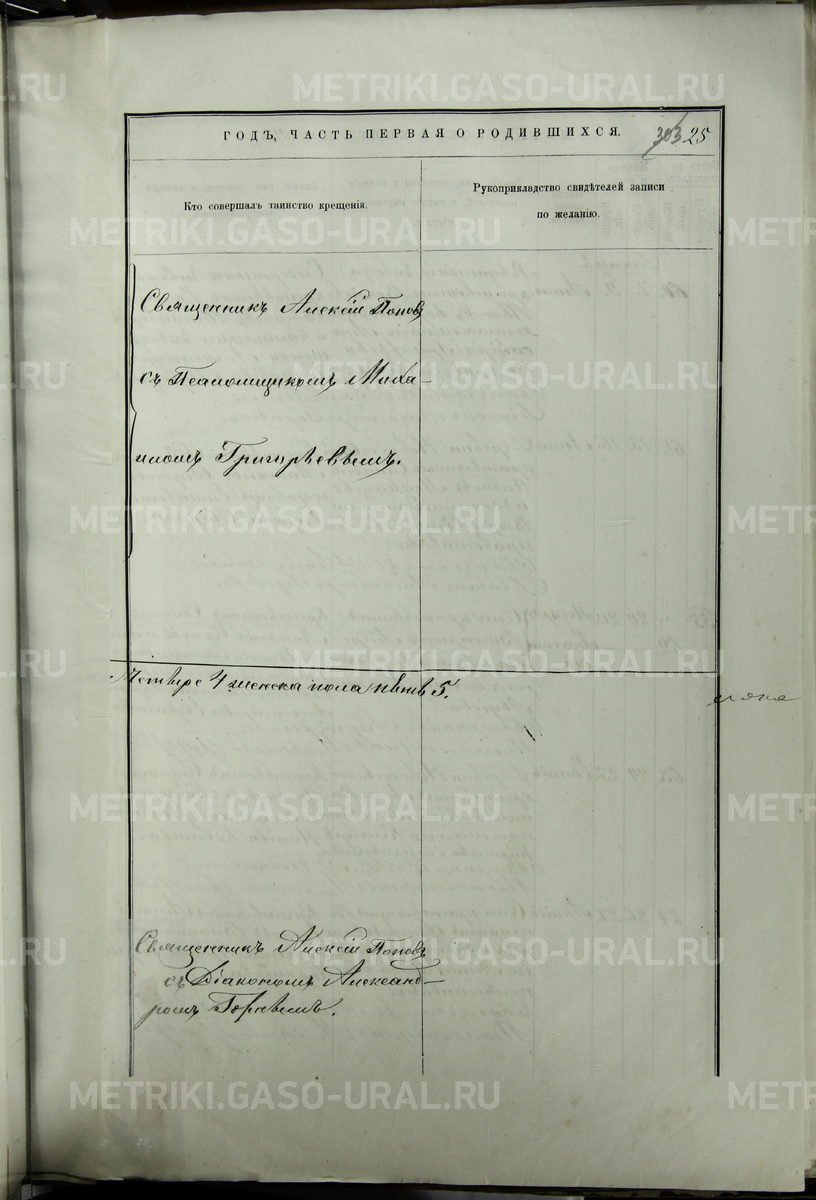 METRIKI.GASO-URAL.RU
ГОДЪ, ЧАСТЬ ПЕРВАЯ О РОДИВШИХСЯ.
303 25
Кто совершалъ таинство крещенія.
Рукоприкладство свидѣтелей записи
по желанію.
Священникъ Алексій Поповъ
съ Псаломщикомъ Миха-
иломъ Григорьевымъ.
Четыре 4 женска пола пять 5.
Священникъ Алексій Поповъ
съ Діакономъ Александ-
ромъ